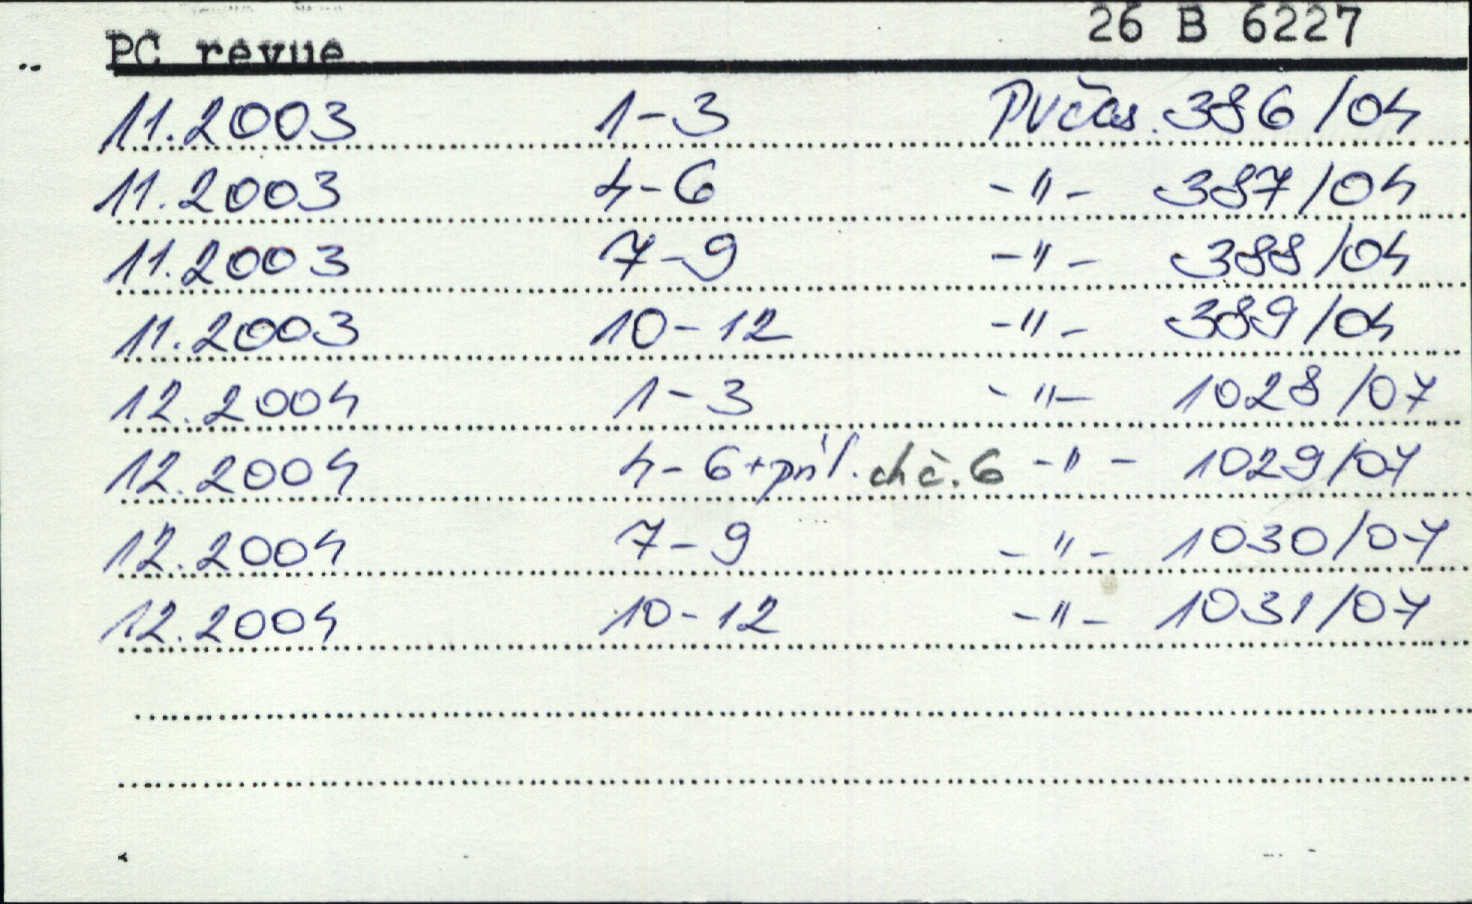 PC revue 26 B 6227
11.2003 1-3 PVčas. 386/04
11.2003 4-6 -"- 387/04
11.2003 7-9 -"- 388/04
11.2003 10-12 -"- 389/04
12.2004 1-3 -"- 1028/07
12.2004 4-6+príl. ch č. 6 -"- 1029/07
12.2004 7-9 -"- 1030/07
12.2004 10-12 -"- 1031/07